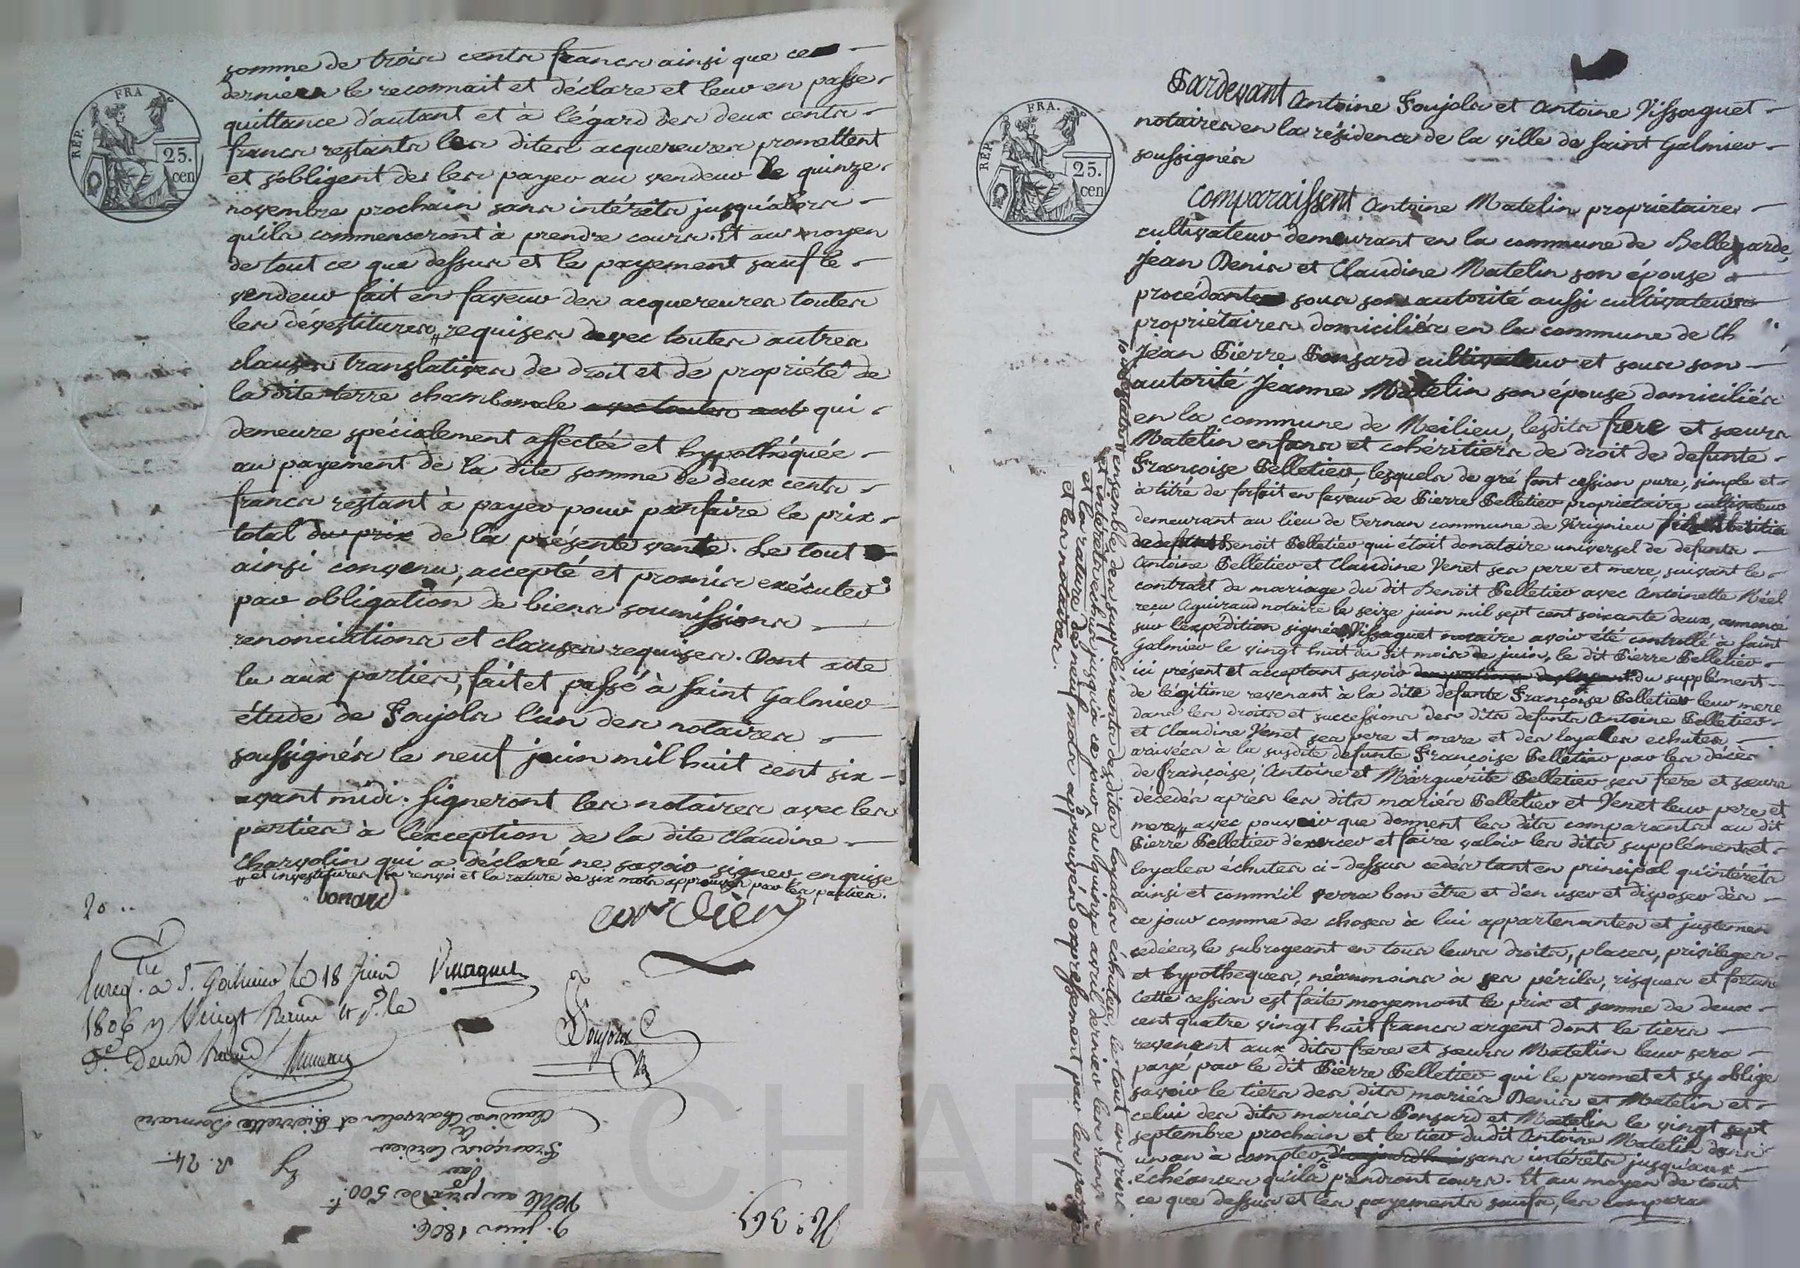 somme de trois cents francs ainsi que ce
derniers le reconnait et déclare et leur en passe
quittance d'autant et à l'égard des deux cents
francs restants les dites acquereures promettent
et s'obligent de les payer au vendeur le quinze
novembre prochain sans intérêts jusqu'alors
qu'ils commenseront à prendre cours. Et au moyen
de tout ce que dessus et le payement sauf le
vendeur fait en faveur des acquereures toutes
les dévestitures, requises avec toutes autres
clauses translatives de droit et de propriété de
la dite terre chambonale avec toutes aut qui
demeure spécialement affectée et hypothéquée
au payement de la dite somme de deux cents
francs restant à payer pour parfaire le prix
total du prix de la présente vente. Le tout
ainsi convenu, accepté et promis exécuter
par obligation de biens soumissions
renonciations et clauses requises. Dont acte
lu aux parties, fait et passé à Saint Galmier
étude de Foujols l'un des notaires
soussignés le neuf juin mil huit cent six
avant midi. Signeront les notaires avec les
parties à l'exception de la dite Claudine
Charvolin qui a déclaré ne savoir signer enquise
et investitures, le renvoi et la rature de six mots approuvés par les parties.
bonard
Cordier
20
Enreg.tré à S.t Galmier le 18 Juin
1806
deux
Vissaguet
Foujols
9. juin 1806.
Vente au prix de 500 f.
par
François Cordier
à
Claudine Charvolin et Pierrette Bonnard
R. 24.
N.o 365.
REP. FRA
25.
cen
Pardevant Antoine Foujols et Antoine Vissaguet
notaires en la résidence de la ville de Saint Galmier
soussignés
Comparaissent Antoine Matelin propriétaire
cultivateur demeurant en la commune de Bellegarde,
Jean Denis et Claudine Matelin son épouse
procédante sous son autorité aussi cultivateurs
propriétaires domiciliés en la commune de Ch
Jean Pierre Ponsard cultivateur et sous son
autorité Jeanne Matelin son épouse domiciliés
en la commune de Meilieu, lesdits frere et sœurs
Matelin enfans et cohéritiers de droit de defunte
Françoise Pelletier, lesquels de gré font cession pure, simple et
à titre de forfait en faveur de Pierre Pelletier propriétaire cultivateur
demeurant au lieu de Cernan commune de Virignieu
Benoit Pelletier qui était donataire universel de defunts
Antoine Pelletier et Claudine Venet ses pere et mere, suivant le
contrat de mariage du dit Benoit Pelletier avec Antoinette Réel
reçu Aguiraud notaire le seize juin mil sept cent soixante deux, annoncé
sur l'expédition signée Vissaguet notaire avoir été controllé à Saint
Galmier le vingt huit du dit mois de juin, le dit Pierre Pelletier
ici présent et acceptant savoir du supplément
de légitime revenant à la dite defunte Françoise Pelletier leur mere
dans les droits et successions des dits defunts Antoine Pelletier
et Claudine Venet ses pere et mere et des loyales echutes
arrivées à la susdite defunte Françoise Pelletier par les décès
de françoise, Antoine et Marguerite Pelletier ses frere et sœurs
décédés après les dits mariés Pelletier et Venet leur pere et
mere, avec pouvoir que donnent les dits comparants au dit
Pierre Pelletier d'exercer et faire valoir les dits supplément et
loyales échutes ci-dessus cédés tant en principal qu'intérêts
ainsi et comm'il verra bon être et d'en user et disposer dès
ce jour comme de choses à lui appartenantes et justement
cédées, le subrogeant en tous leurs droits, places, privileges
et hypotheques, néanmoins à ses périls, risques et fortune
Cette cession est faite moyennant le prix et somme de deux
cent quatre vingt huit francs argent dont le tiers
revenant aux dits frere et sœurs Matelin leur sera
payé par le dit Pierre Pelletier qui le promet et s'y oblige
savoir le tiers des dits mariés Denis et Matelin et
celui des dits mariés Ponsard et Matelin le vingt sept
septembre prochain et le tier du dit Antoine Matelin dans
un an à compter d'aujourd'hui sans intérêts jusqu'aux
échéances qu'ils prendront cours. Et au moyen de tout
ce que dessus et les payements saufs, les compara
ensemble des suppléments desdites loyales échutes, le tout en princ
et interets échus jusqu'à ce jour du quinze avril dernier
et la rature de neuf mots approuvés expressément par les parties
et les notaires.
REP. FRA.
25.
cen